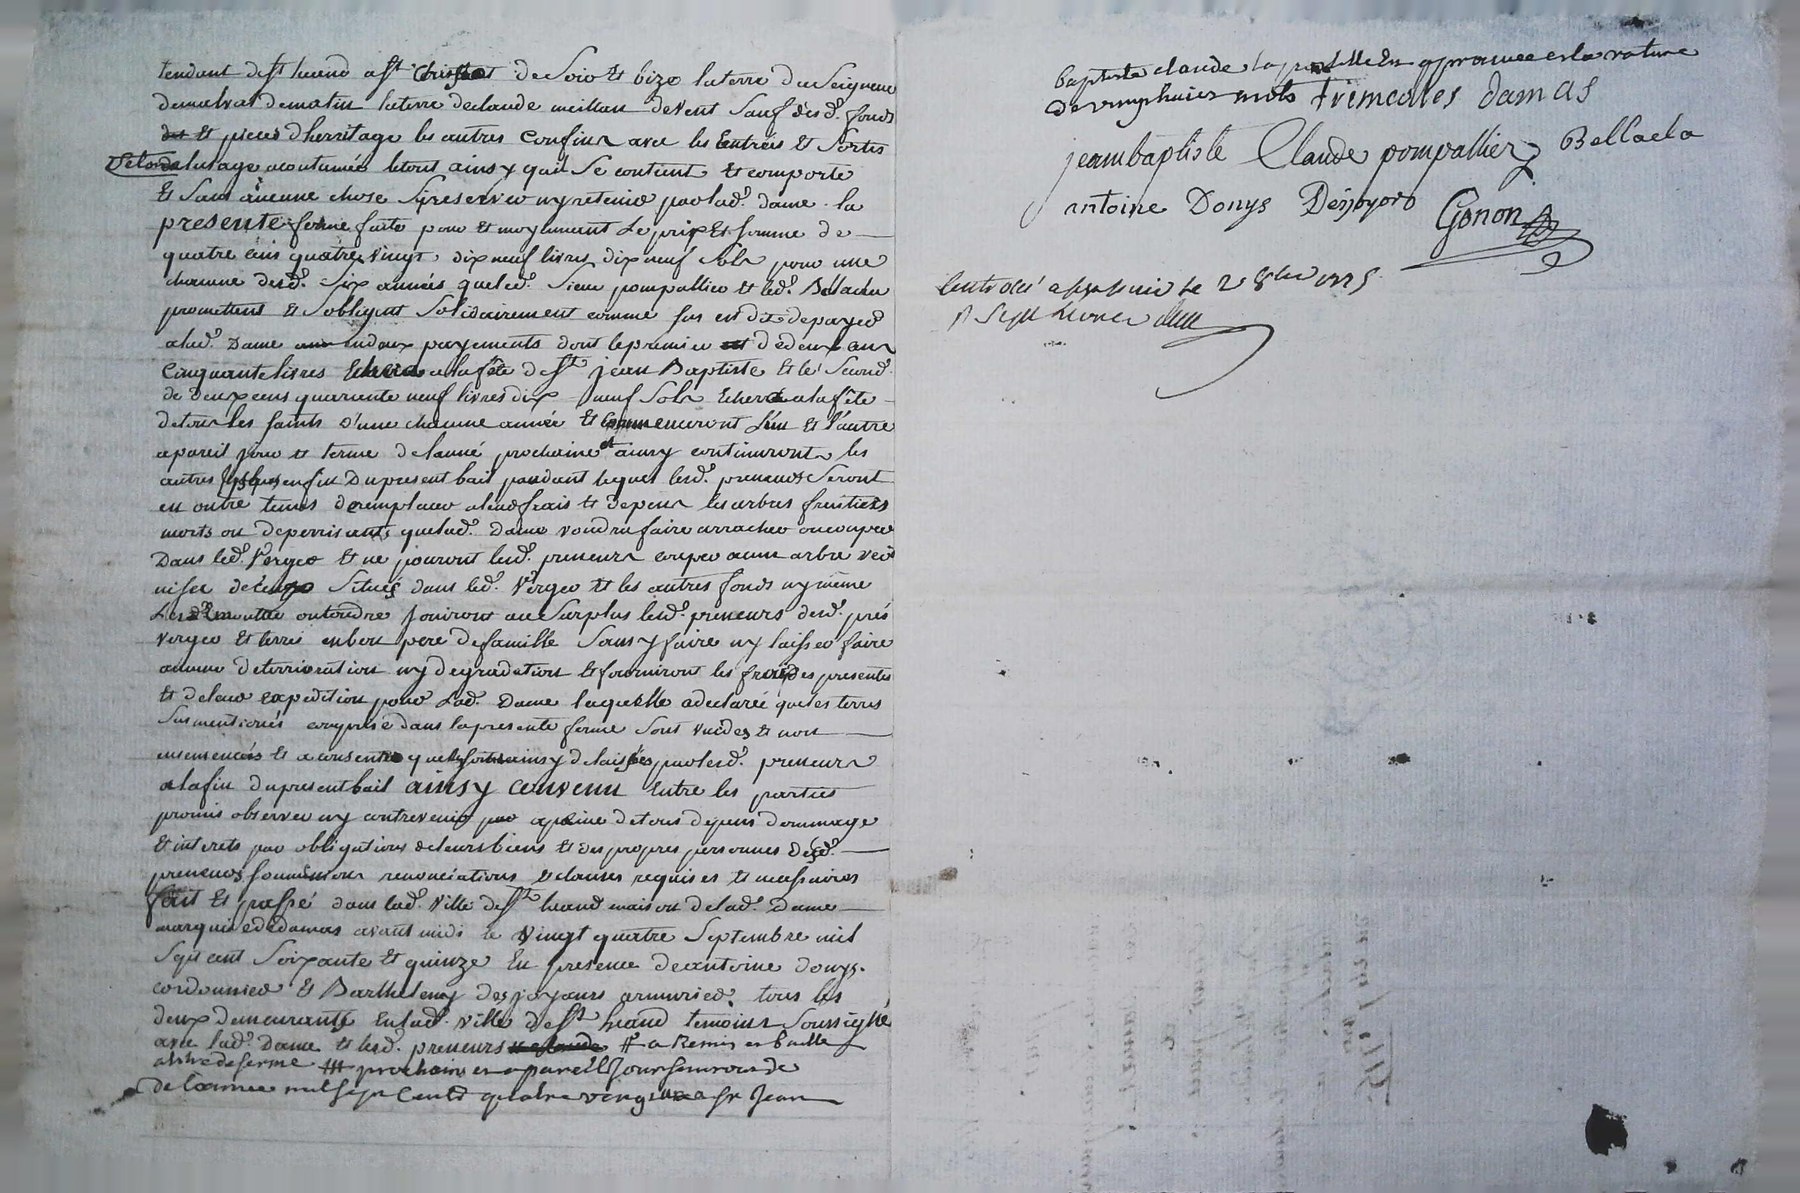 tendant de St heand a St Christost de Soir et bize la terre du Seigneur
de malval de matin la terre de claude meillan de vent Sauf desd. fonds
et pieces dherritage les autres Confins avec les Entrées et Sorties
de lusage acoutumés letout ainsy quil Se contient et comporte
et Sans aucune chose Sy reserver ny retenir par lad. dame la
presente ferme faite pour et moyennant Le prix et Somme de
quatre cens quatre vingt dix neuf livres dix neuf Sols pour une
chacune desd. Six années queled. Sieur pompallier et led. Belacla
promettent et Sobligent Solidairement comme fus est dit de payer
alad. Dame en deux payements dont le premier de deux cens
Cinquante livres Echera a la fête de St jean Baptiste et le Second
de deux cens quarente neuf livres dix neuf Sols Echera a la fête
de tous les saints d'une chacune année et Commenceront L'un et l'autre
a pareil jour et terme de lanné prochaine et ainsy continüront les
autres Jusques enfin Du present bail pendant lequel lesd. preneurs Seront
en outre tenus de remplacer a leurs frais et depens les arbres fruitiers
morts ou deperrissants que lad. Dame voudra faire arracher ou couper
Dans led. Verger et ne pouront lesd. preneurs couper aucun arbre verd
ny sec Situés dans led. Verger et les autres fonds ny même
Les emonder ou tondre Jouiront au Surplus lesd. preneurs desd. prés
verger et terres en bon pere de famille Sans y faire ny laisser faire
aucune deterrioration ny degradation et fourniront les frais des presentes
et de leur expedition pour Lad. Dame laquelle a declaré que les terres
Susmentionés comprise dans la presente ferme Sont vuides et non
ensemencés et a consenti quelles soient ainsy delaissées par lesd. preneurs
a la fin du present bail ainsy convenu Entre les parties
promis observer ny contrevenir a peine de tous depens dommage
et interets par obligations de leurs biens et des propres personnes desd.
preneurs soumissions renonciations et clauses requises et necessaires
fait et passé dans lad. Ville de St heand maison de lad. Dame
marquise de damas avant midi le vingt quatre Septembre mil
Sept cent Soixante et quinze En presence de antoine donys
cordonnier et Barthelemy desjoyaux armurier tous les
deux demeurants En lad. ville de St heand temoins Soussignés
avec lad. Dame et lesd. preneurs # a Remis en baille
a titre de ferme ### prochain et a pareil Jour
de l'année mil sept Cent quatre vingt St Jean
baptiste claude en aprouvee la rature
de vingt huict mots trémeoles damas
jeanbaptiste Claude pompallier Bellacla
antoine Donys Desjoyaux Gonon
Controlé a le 2 8bre 1775